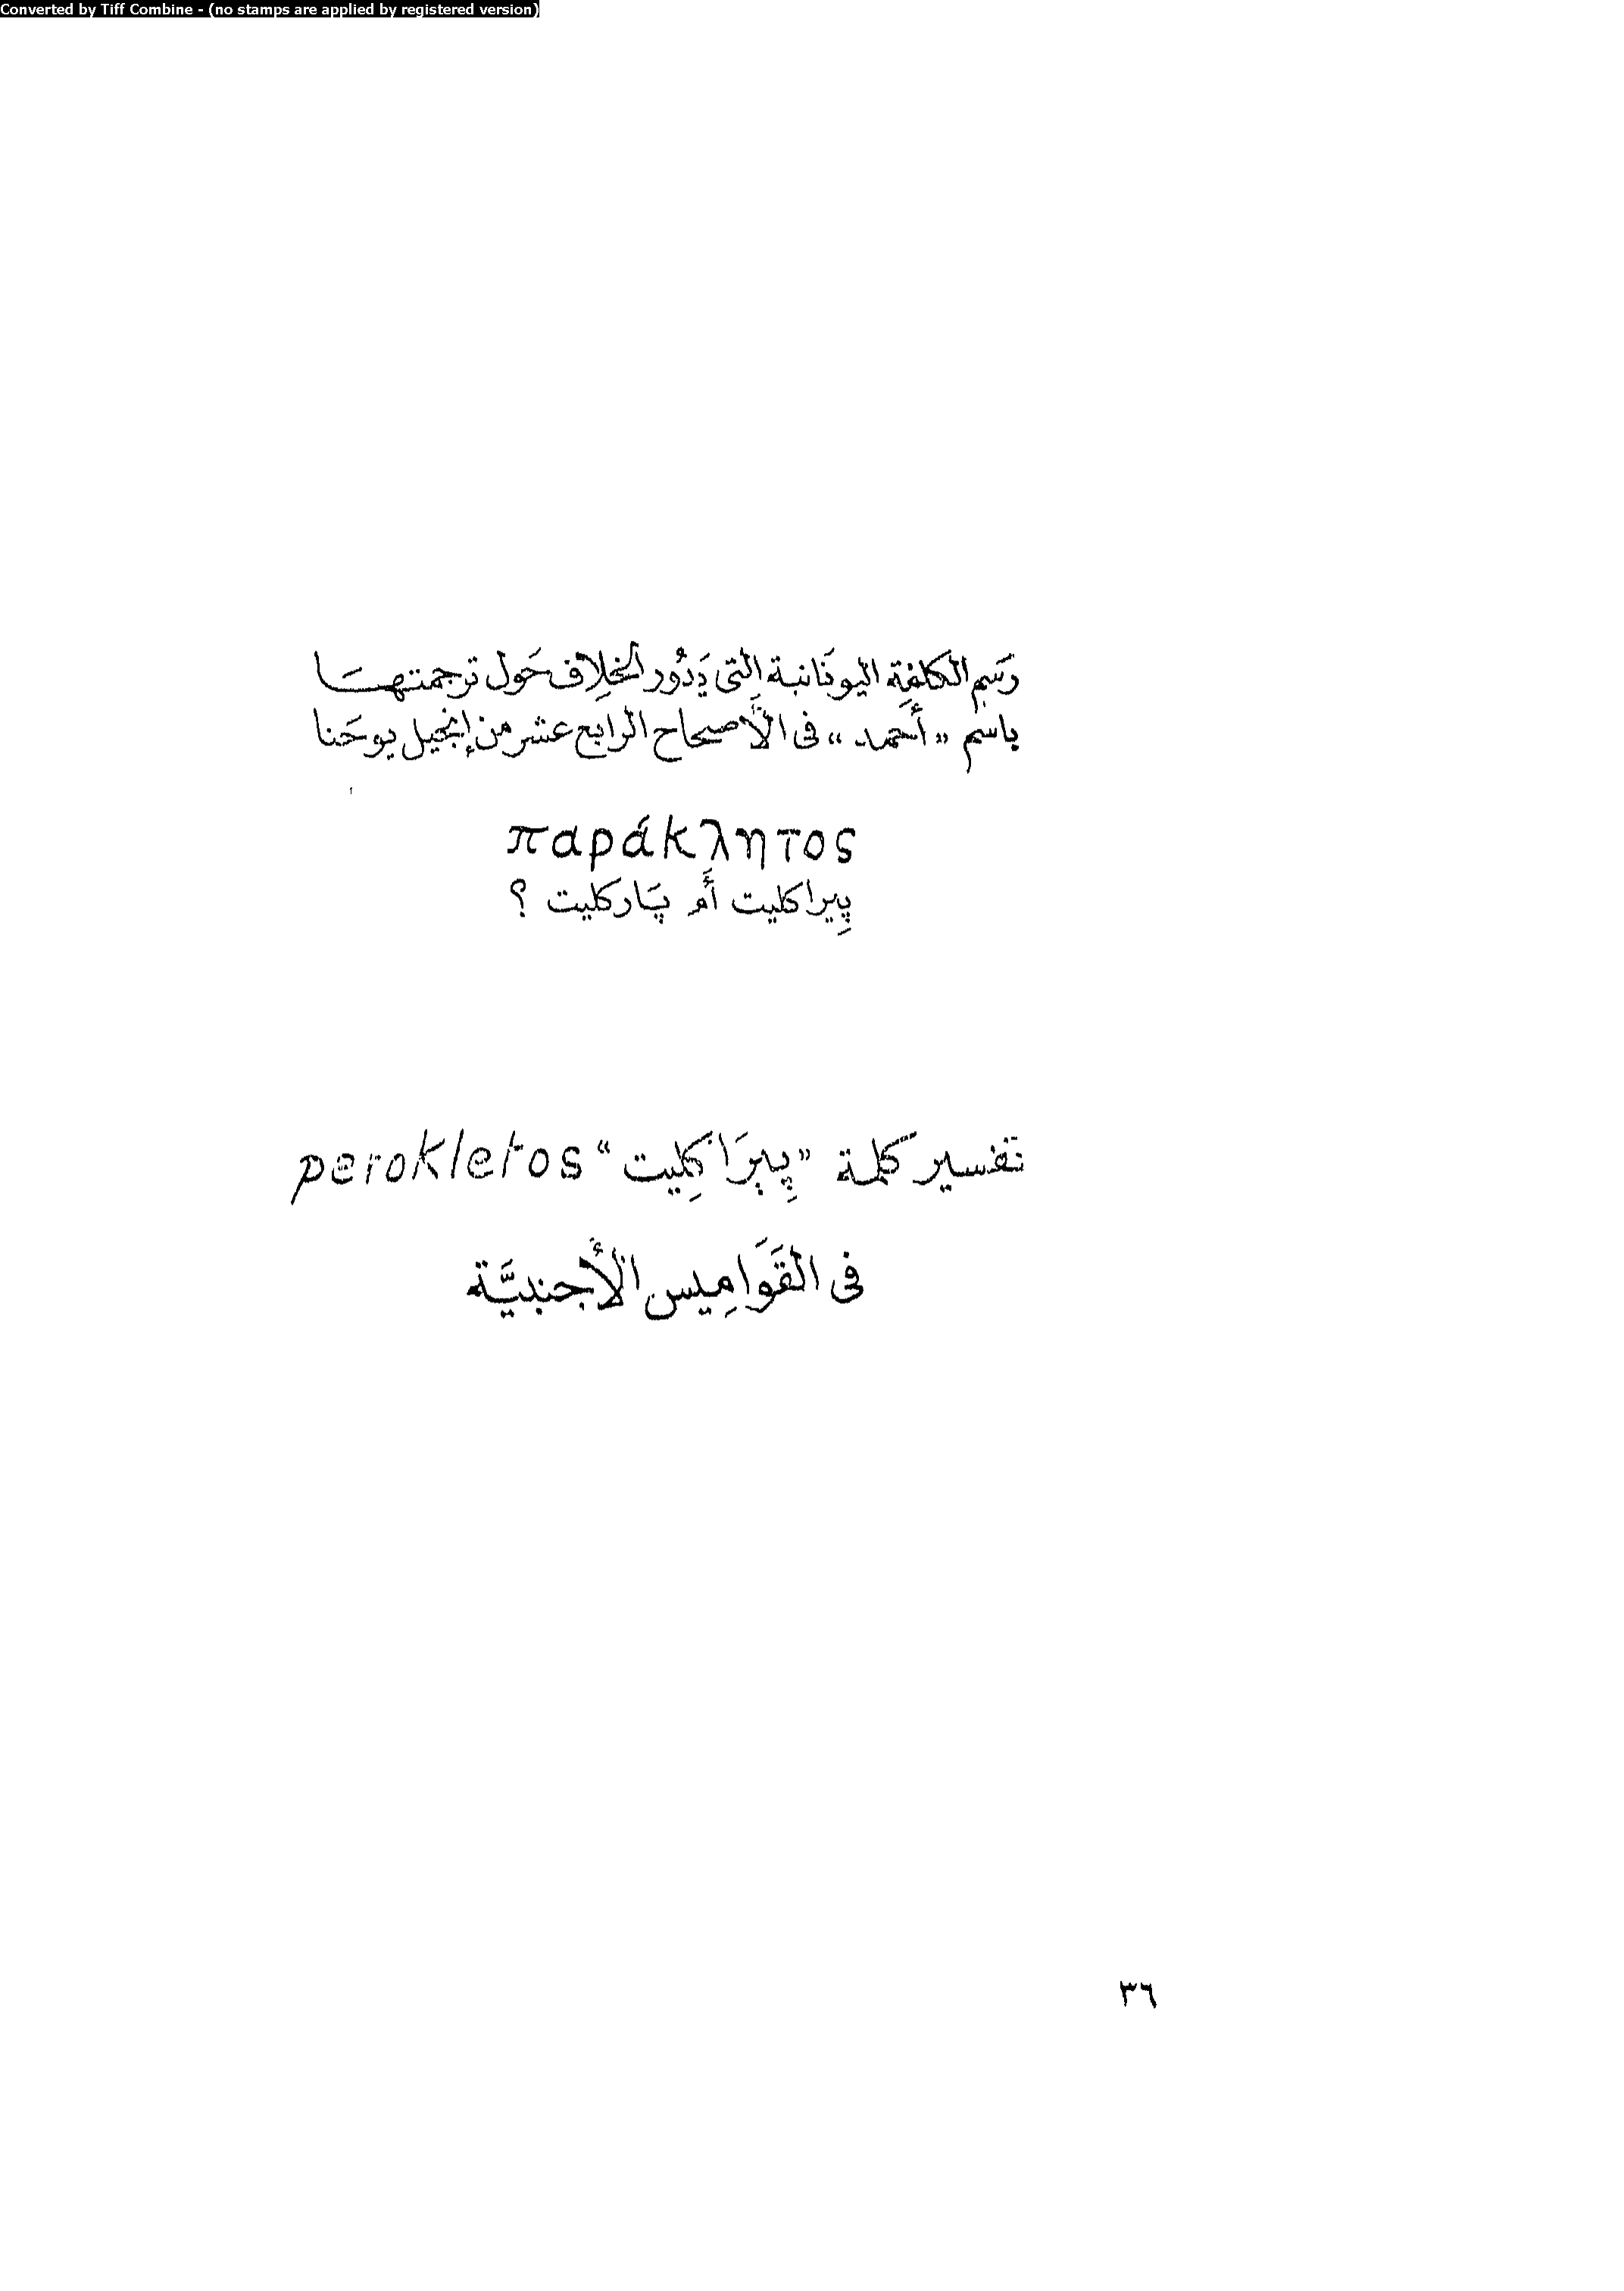 Converted by Tiff Combine - (no stamps are applied by registered version)
رَسم الكلمة اليونَانية التى يَدُور الخلاف حَول ترجمتهـَا
باسم «أحمد» فى الأصحاح الرابع عشر من إنجيل يوحَنا
παράκλητος
پِيراكليت أَم پَاركليت ؟
تفسير كلمة «پِيرَاكِليت» perokletos
فى القَوَامِيس الأَجنبيَّة
٣٦